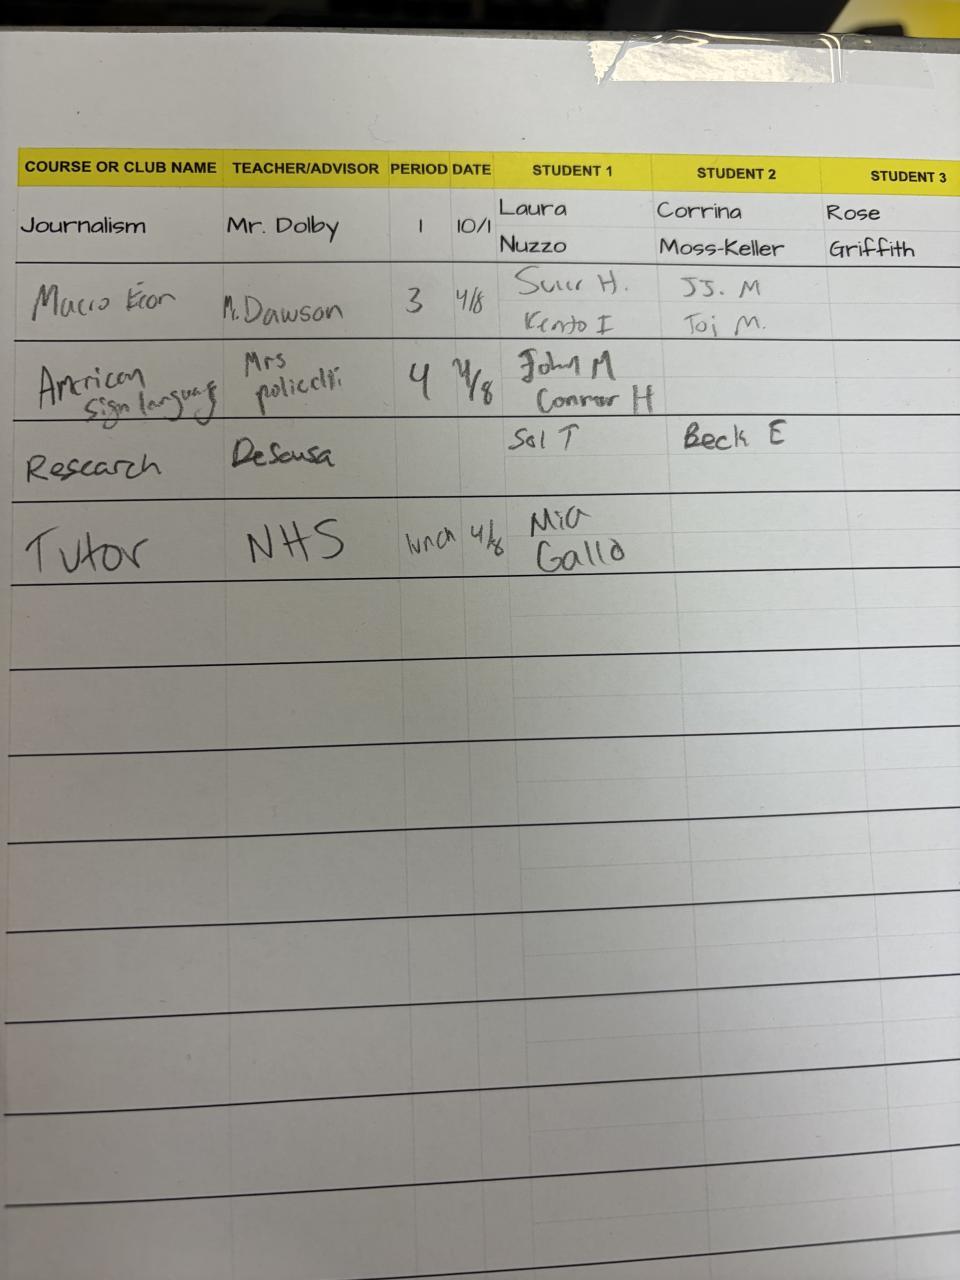 COURSE OR CLUB NAME TEACHER/ADVISOR PERIOD DATE STUDENT 1 STUDENT 2 STUDENT 3
Journalism Mr. Dolby 1 10/1 Laura Nuzzo Corrina Moss-Keller Rose Griffith
Macro Econ Mr. Dawson 3 4/8 H. JJ. M
Kento I Toi M.
American sign language Mrs 4 4/8 John M
Connor H
Research DeSousa Sol T Beck E
Tutor NHS lunch 4/8 Mia Gallo